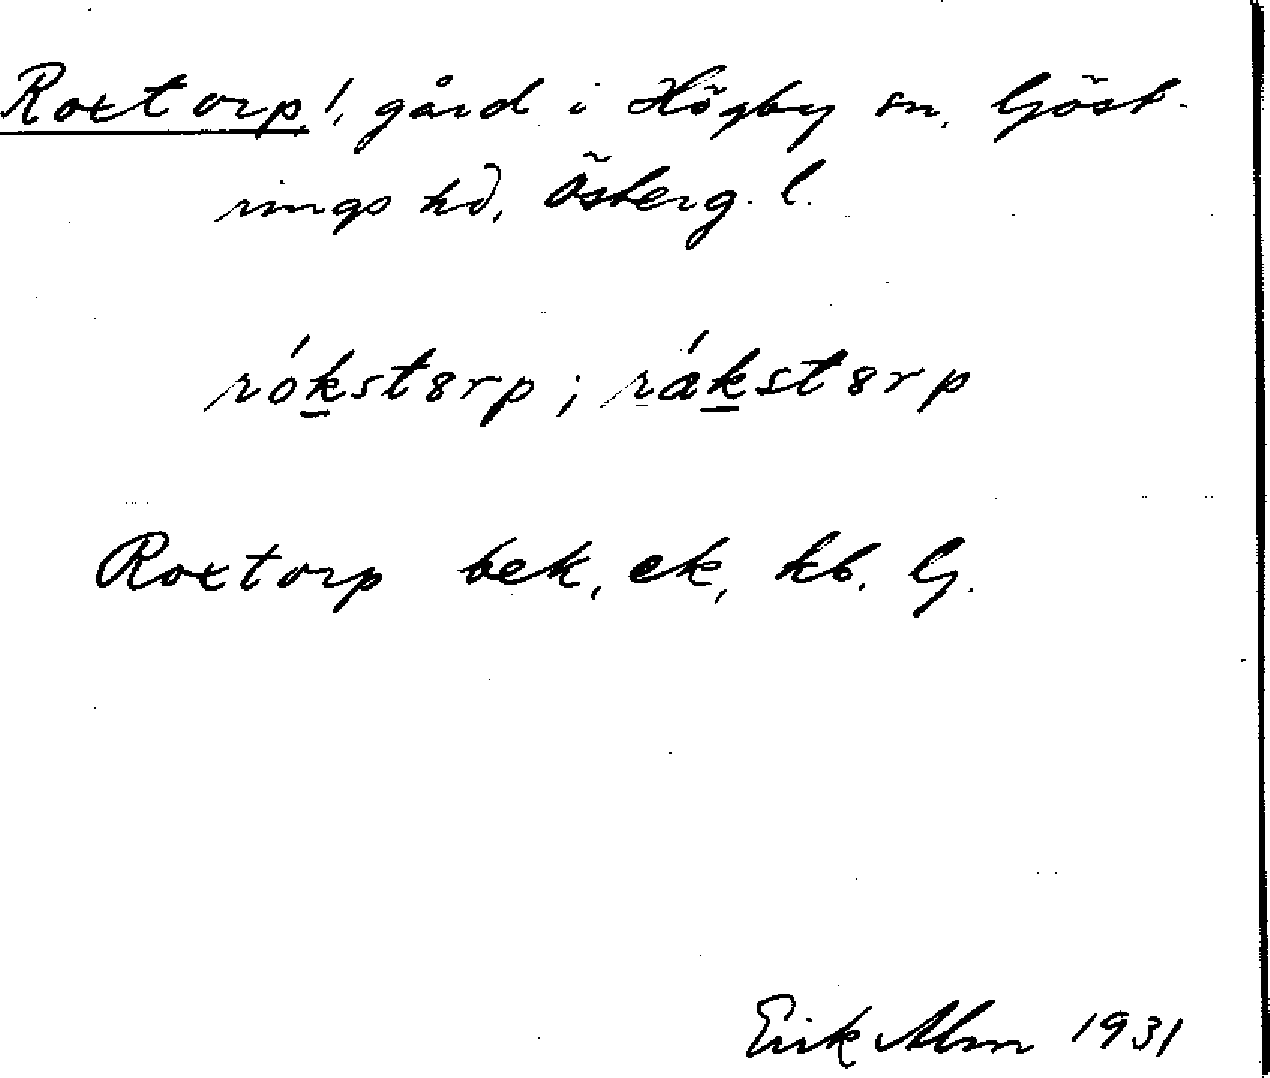 Roxtorp!, gård i Högby sn, Göst-
rings hd, Österg. l.
rókstȣrp; rákstȣrp
Roxtorp bek, ek, kb. G.
Erik Alm 1931